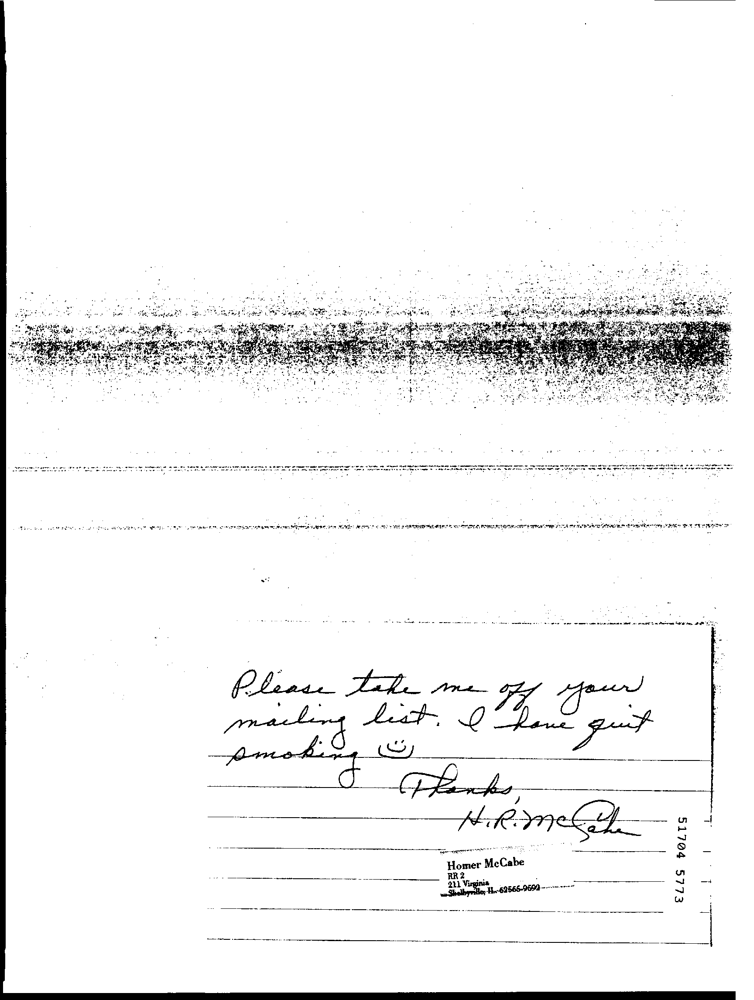 Please take me off your
mailing list. I have quit
smoking ☺
Thanks,
H.R. McCabe
Homer McCabe
RR 2
211 Virginia
Shelbyville, IL 62565-9692
51704 5773